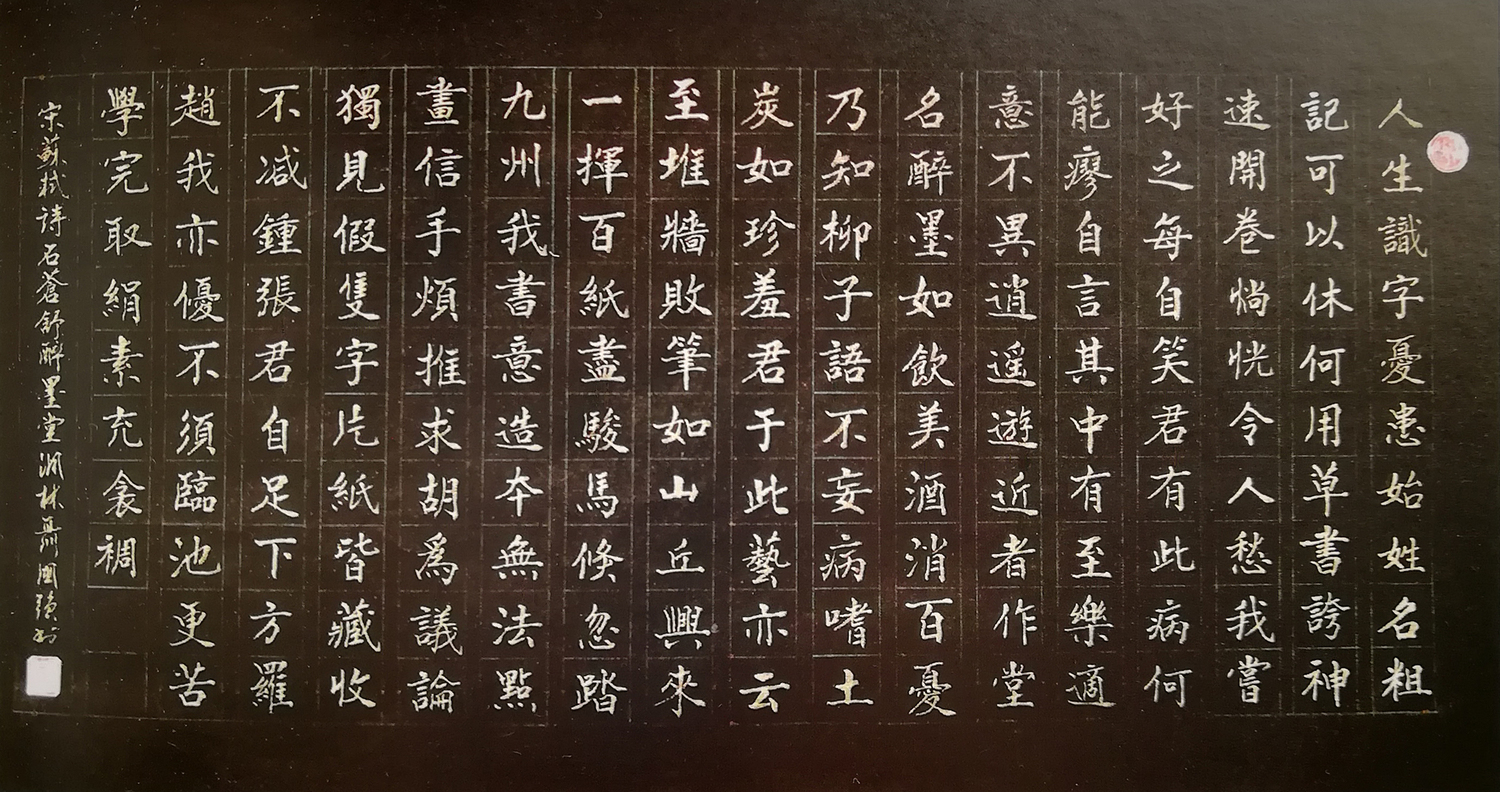 人生識字憂患始姓名粗
記可以休何用草書誇神
速開卷惝恍令人愁我嘗
好之每自笑君有此病何
能瘳自言其中有至樂適
意不異逍遥遊近者作堂
名醉墨如飲美酒消百憂
乃知柳子語不妄病嗜土
炭如珍羞君于此藝亦云
至堆牆敗筆如山丘興來
一揮百紙盡駿馬倏忽踏
九州我書意造本無法點
畫信手煩推求胡爲議論
獨見假隻字片紙皆藏收
不減鍾張君自足下方羅
趙我亦優不須臨池更苦
學完取絹素充衾裯
宋蘇軾詩石蒼舒醉墨堂